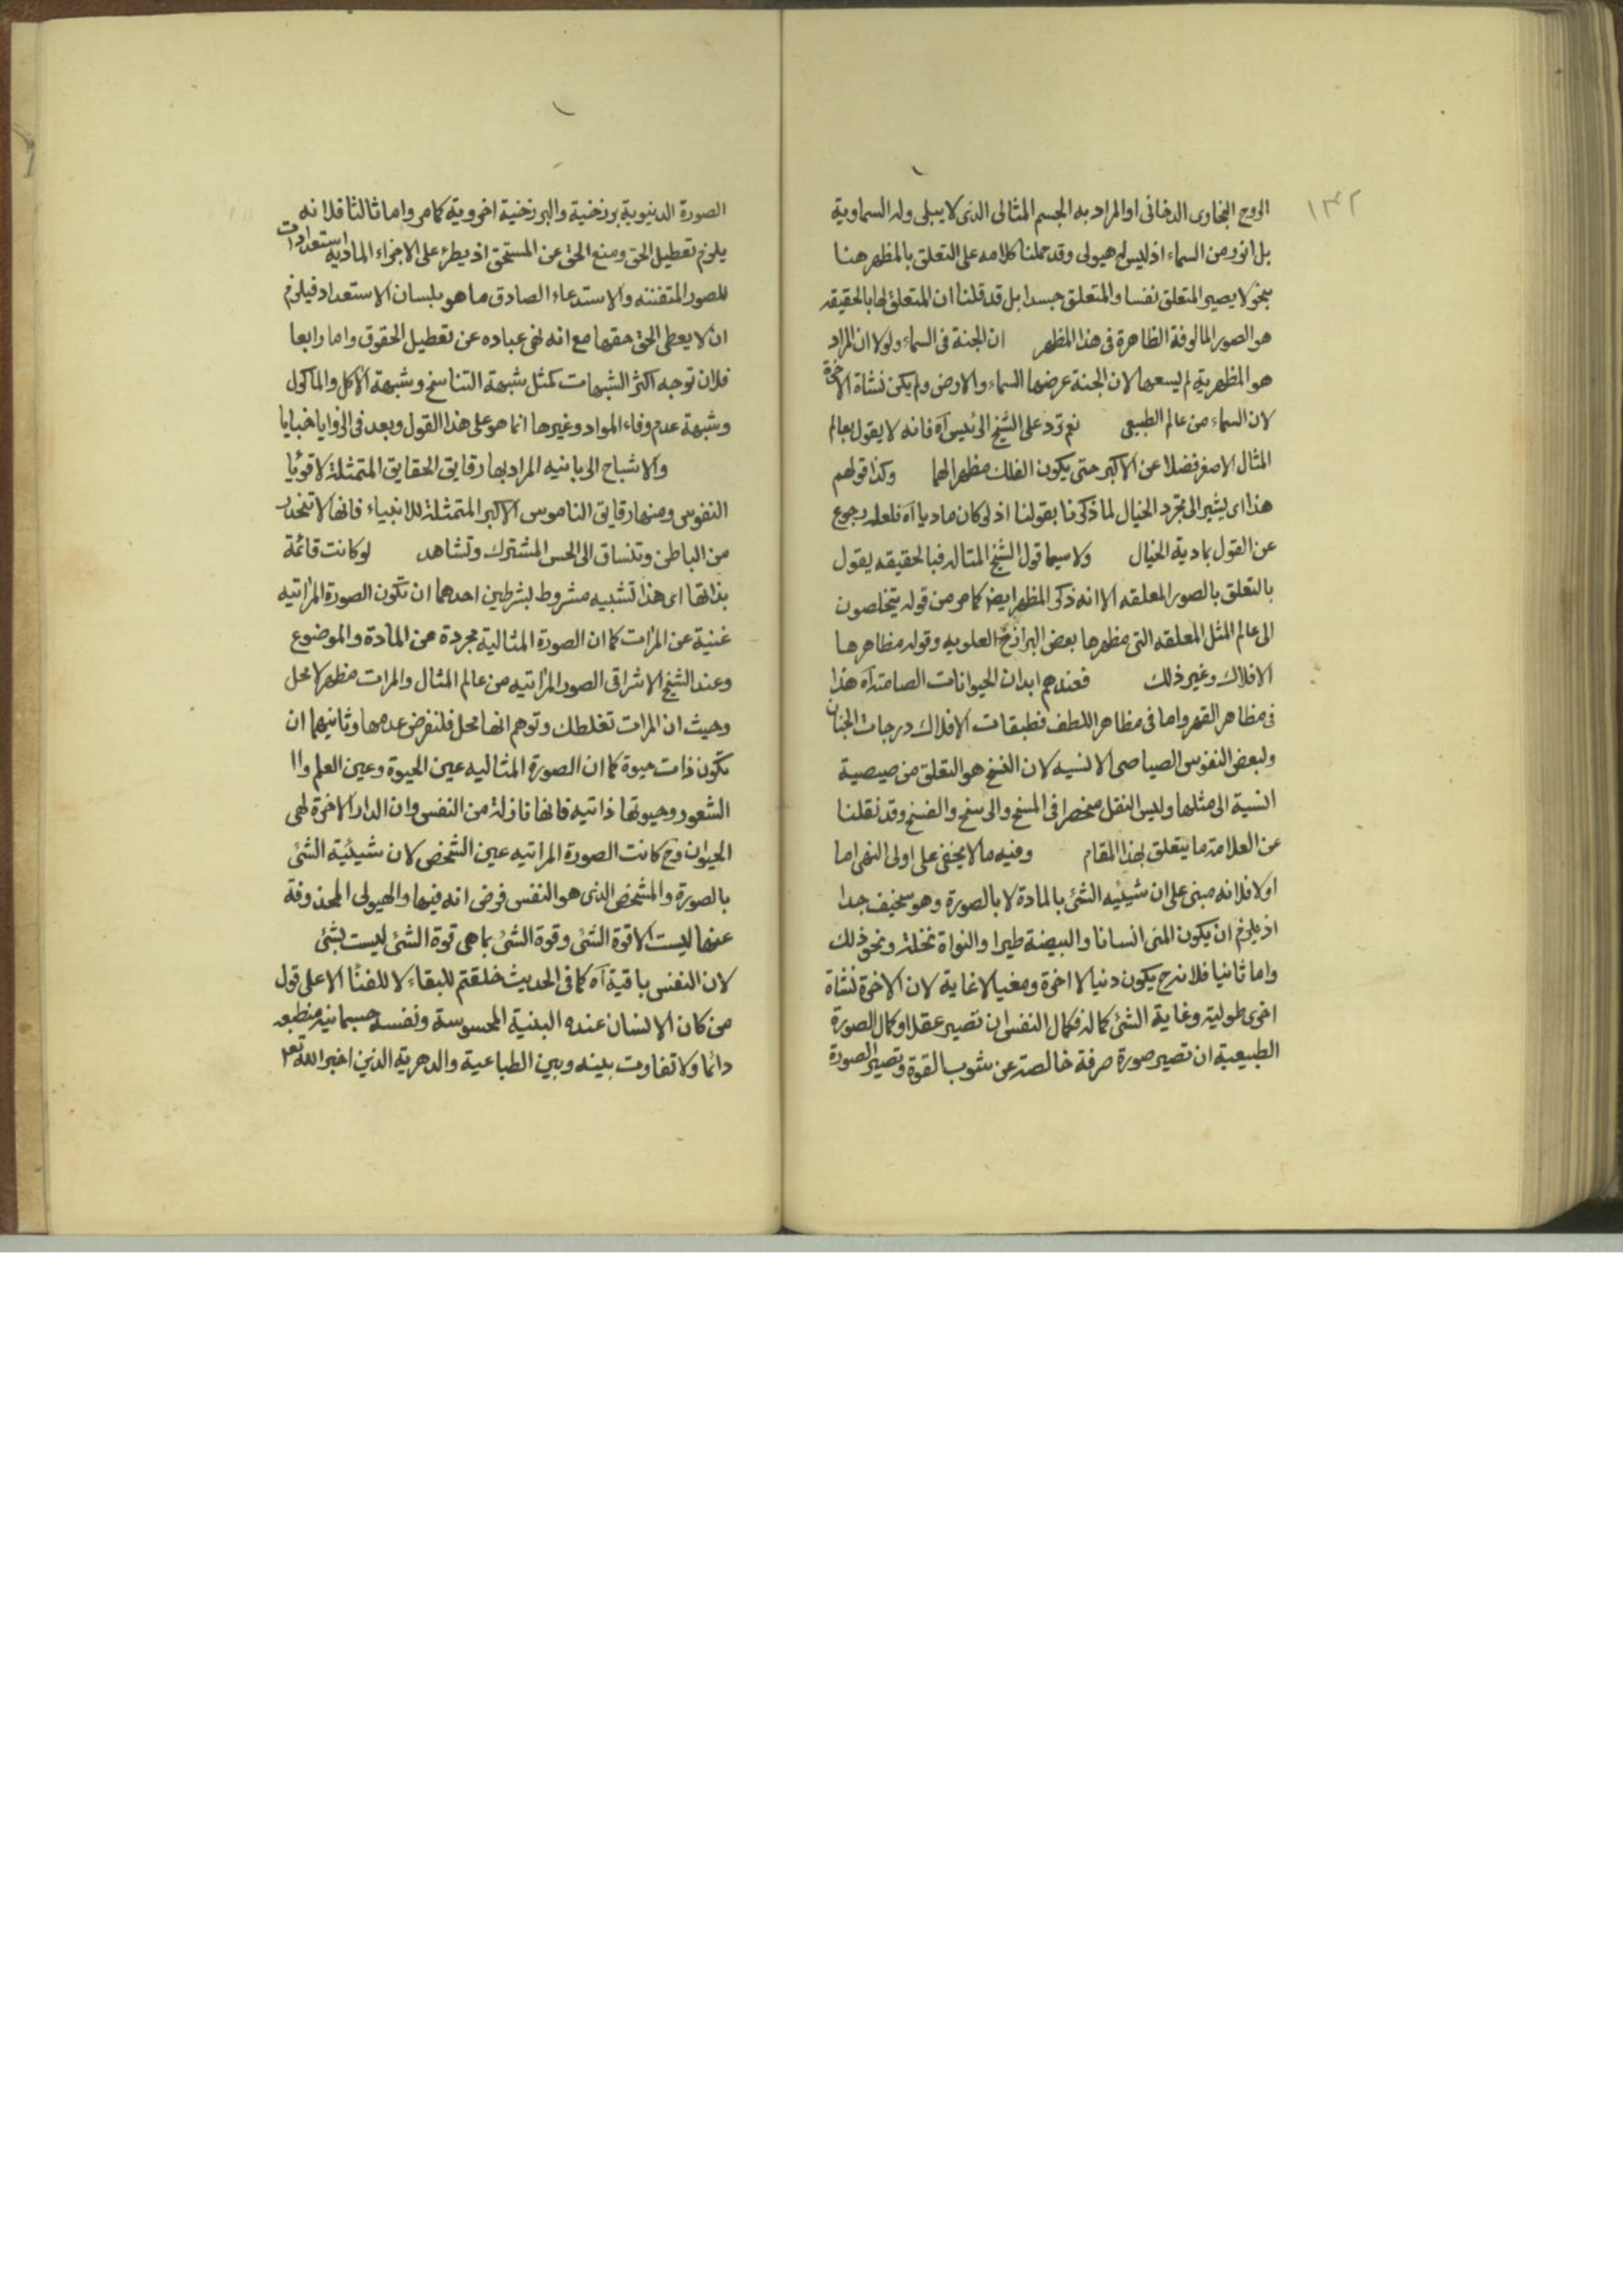 ١٣٢
الروح البخارى الدخانى او المراد به الجسم المثالى الذى لا يبلى وله السماوية
بل انور من السماء اذ ليس له هيولى وقد حملنا كلامه على التعلق بالمظهر هنا
بنحو لا يصير المتعلق نفسا والمتعلق جسدا بل قد قلنا ان المتعلق لها بالحقيقه
هو الصور المالوفة الظاهرة فى هذا المظهر ان الجنة فى السماء ولولا ان المراد
هو المظهرية لم يسعها لان الجنة عرضها السماء والارض ولم يكن نشاة الاخرة
لان السماء من عالم الطبيعى نعم ترد على الشيخ الرئيس آه فانه لا يقول بعالم
المثال الاصغر فضلا عن الاكبر حتى يكون الفلك مظهرا لهما وكذا قولهم
هذا اى يشير الى تجرد الخيال لما ذكرنا بقولنا اذ لو كان ماديا آه فلعله رجوع
عن القول بمادية الخيال ولا سيما قول الشيخ المتاله فبالحقيقه يقول
بالتعلق بالصور المعلقه الا انه ذكر المظهر ايضا كما مر من قوله يتخلصون
الى عالم المثل المعلقه التى مظهرها بعض البرازخ العلويه وقوله مظاهرها
الافلاك وغير ذلك فعندهم ابدان الحيوانات الصامته آه هذا
فى مظاهر القهر واما فى مظاهر اللطف فطبقات الافلاك درجات الجنان
ولبعض النفوس الصياصى الانسيه لان النسخ هو التعلق من صيصية
انسية الى مثلها وليس النقل منحصرا فى المسخ والرسخ والفسخ وقد نقلنا
عن العلامة ما يتعلق بهذا المقام وفيه ما لا يخفى على اولى النهى اما
اولا فلانه مبنى على ان شيئيه الشئ بالمادة لا بالصورة وهو سخيف جدا
اذ يلزم ان يكون المنى انسانا والبيضة طيرا والنواة نخلة ونحو ذلك
واما ثانيا فلانه ح يكون دنيا لا اخرة ومغيا لا غاية لان الاخرة نشاة
اخرى طولية وغاية الشئ كماله فكمال النفس ان تصير عقلا وكمال الصورة
الطبيعية ان تصير صورة صرفة خالصة عن شوب القوة وتصير الصورة
الصورة الدنيوية برزخية والبرزخية اخروية كما مر واما ثالثا فلانه
يلزم تعطيل الحق ومنع الحق عن المستحق اذ يطرء على الاجزاء المادية استعدادات
للصور المتفننه والاستدعاء الصادق ما هو بلسان الاستعداد فيلزم
ان لا يعطى الحق حقها مع انه نهى عباده عن تعطيل الحقوق واما رابعا
فلان توجه اكثر الشبهات كمثل شبهة التناسخ وشبهة الاكل والمأكول
وشبهة عدم وفاء المواد وغيرها انما هو على هذا القول وبعد فى الزوايا خبايا
والاشباح الربانيه المراد بها رقايق الحقايق المتمثلة لاقوياء
النفوس ومنها رقايق الناموس الاكبر المتمثلة للانبياء فانها لا تنحدر
من الباطن وتنساق الى الحس المشترك وتشاهد لو كانت قائمة
بذاتها اى هذا تشبيه مشروط بشرطين احدهما ان تكون الصورة المراتيه
غنية عن المرات كما ان الصورة المثالية مجردة عن المادة والموضوع
وعند الشيخ الاشراقى الصور المراتيه من عالم المثال والمرات مظهر لا محل
وحيث ان المرات تغلطك وتوهم انها محل فلنفرض عدمها وثانيهما ان
تكون ذات حيوة كما ان الصورة المثاليه عين الحيوة وعين العلم وا
الشعور وحيوتها ذاتيه فانها نازلة من النفس وان الدار الاخرة لهى
الحيوان وح كانت الصورة المراتيه عين الشخص لان شيئية الشئ
بالصورة والمشخص الذى هو النفس فرض انه فيها والهيولى المحذوفة
عنها ليست الا قوة الشئ وقوة الشئ بما هى قوة الشئ ليست بشئ
لان النفس باقية آه كما فى الحديث خلقتم للبقاء لا للفناء الا على قول
من كان الانسان عنده البنية المحسوسة ونفسه جسمانيه منطبعه
دائما ولا تفاوت بينه وبين الطباعية والدهرية الذين اخبر الله تعالى